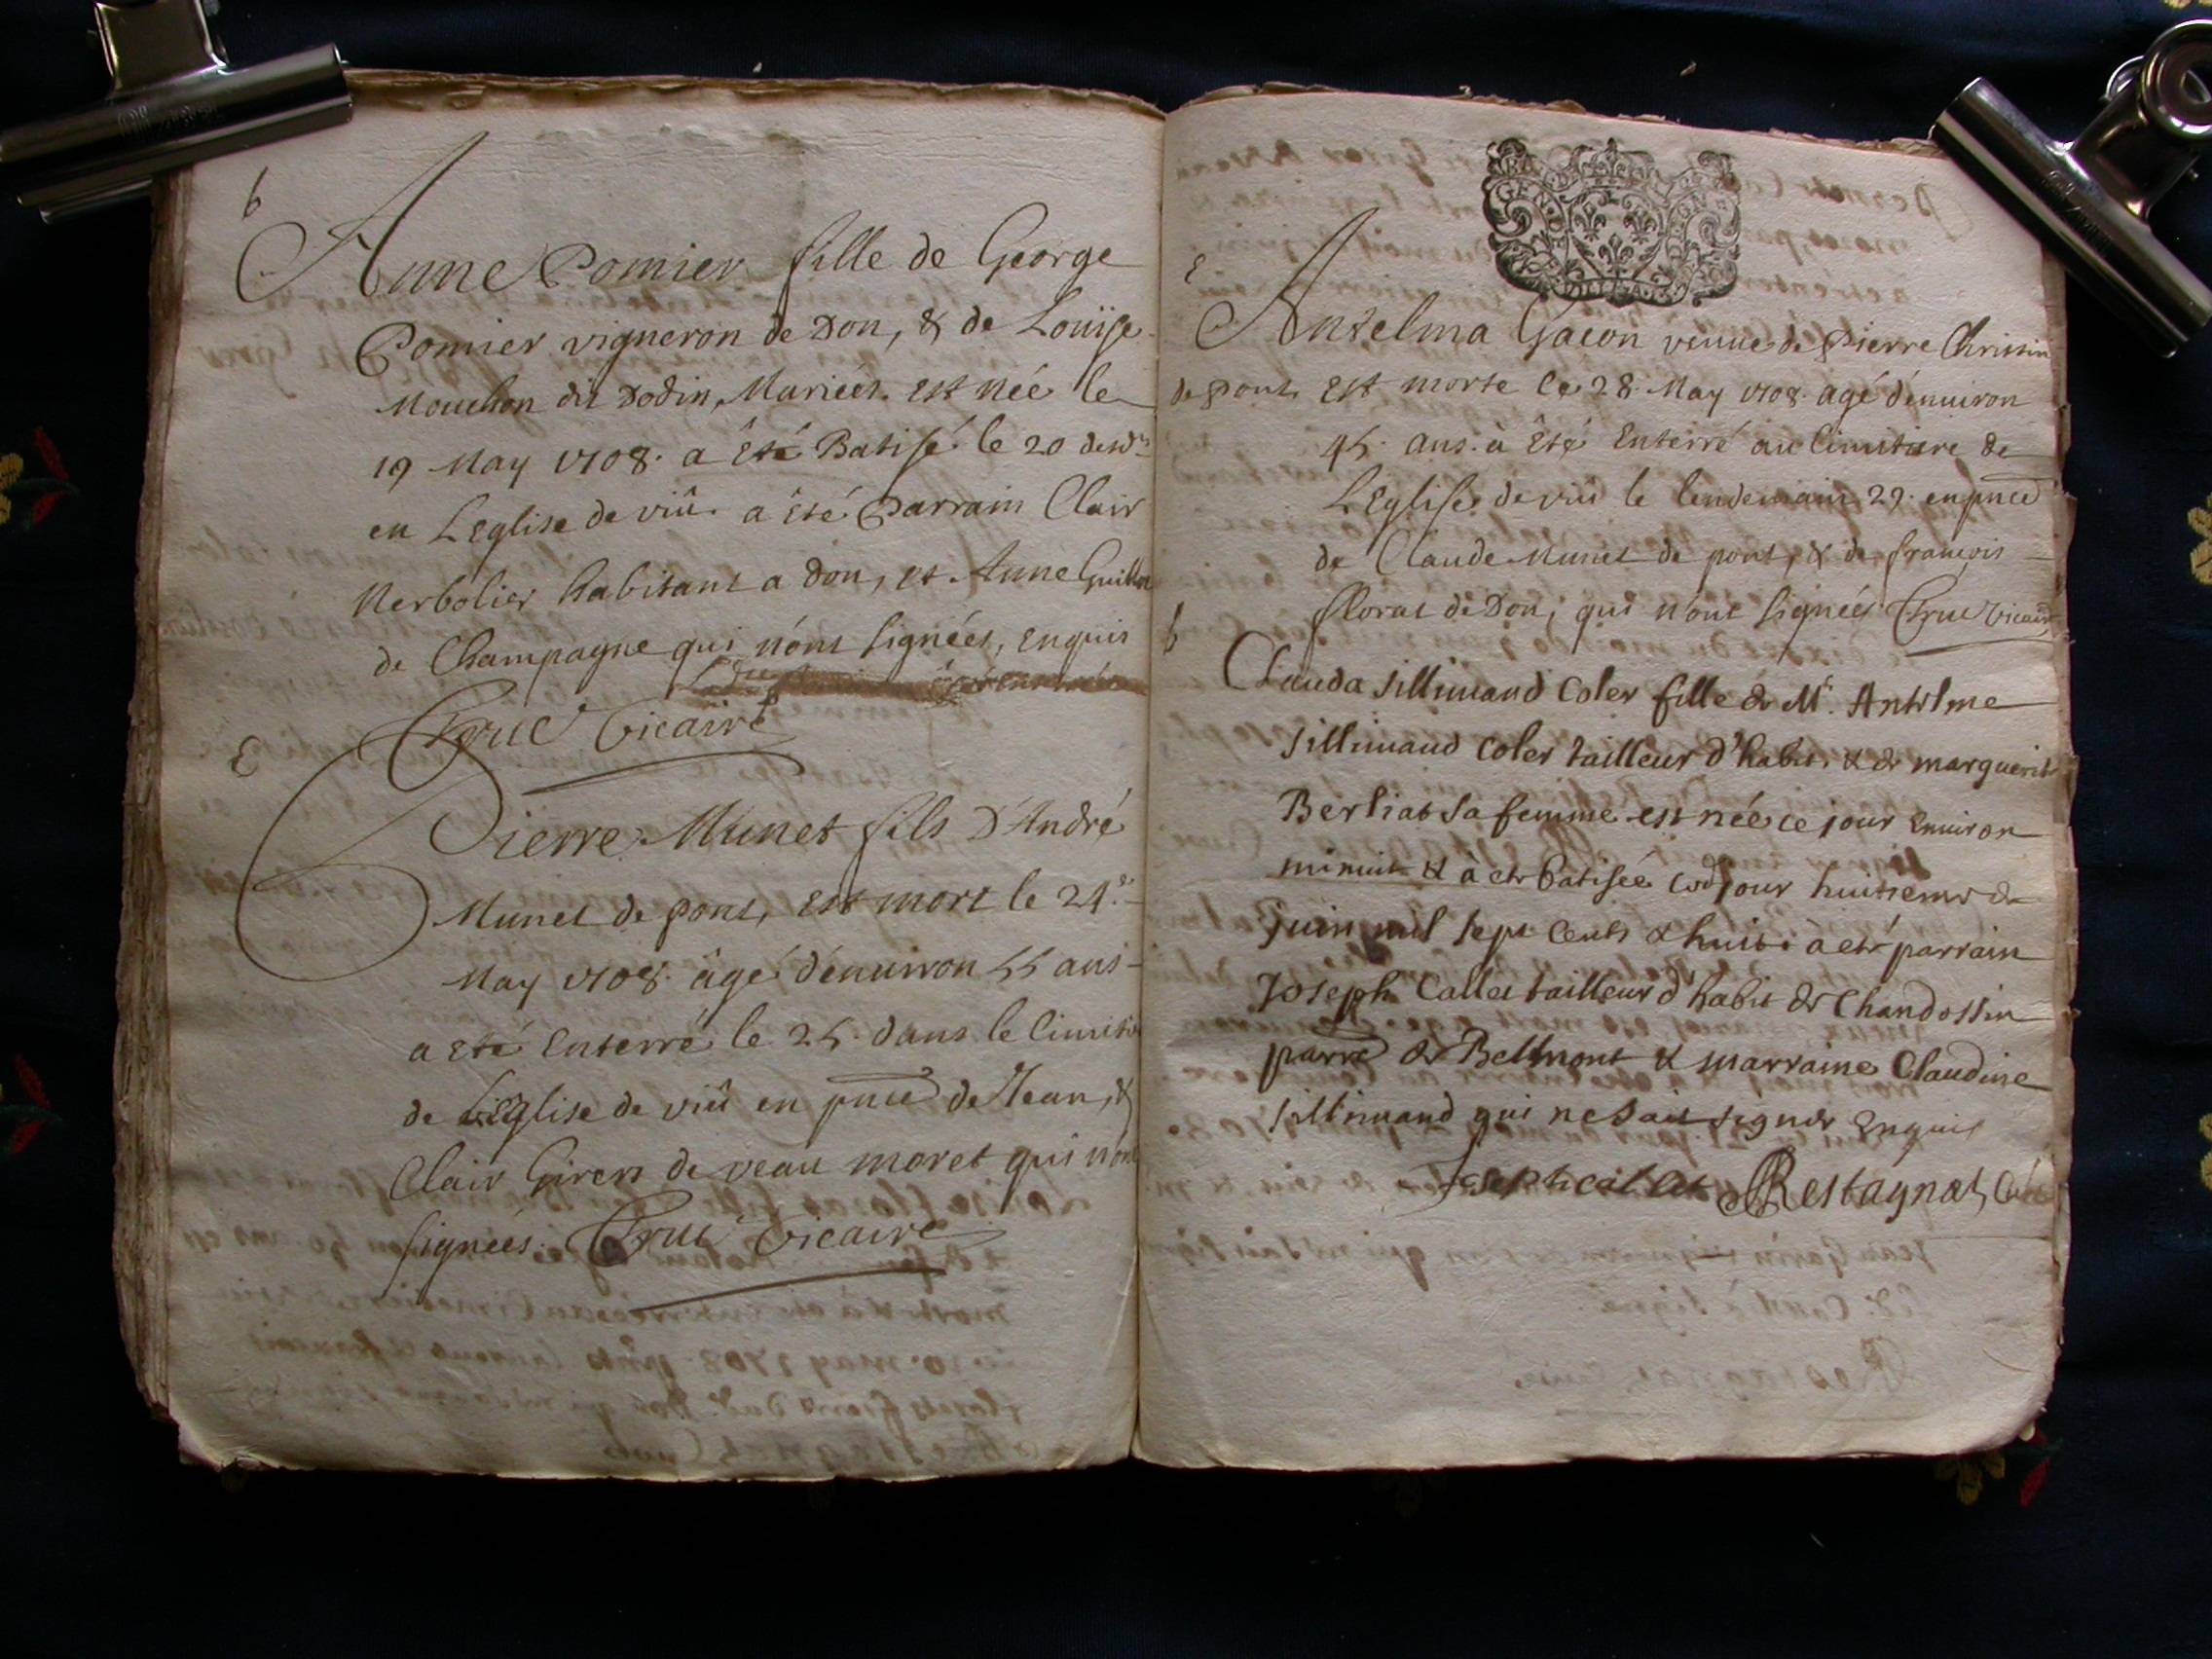 b
Anne Pomier fille de George
Pomier vigneron de Don, & de Louïse
Mouchon dit Dodin, Mariées. est née le
19 May 1708. a Été Batisé le 20 desd.
en L'Eglise de viû. a été Parrain Clair
Nerbolier habitant a Don, et Anne Guillon
de Champagne qui n'ont signées, Enquis
Truc Vicaire
E
Pierre Munet fils D'André
Munet de pont, est mort le 24.e
May 1708. âgé d'enuiron 55 ans
a Été Enterré le 25. dans le Cimitie
de L'Eglise de viû en pnce de Jean, &
Clair Girers de veau moret qui n'ont
signées. Truc Vicaire
E
GEN
Antelma Gacon veuue de Pierre Chrissin
de pont, est morte le 28. May 1708. agé d'enuiron
45. ans. à Été Enterré au Cimitiere de
L'Eglise de viû le lendemain 29. en pnce
de Claude Munet de pont, & de françois
florat de Don, qui n'ont signées Truc vicaire
b
Clauda sillimand Coler fille de Mr. Antelme
sillimand Coler tailleur d'habit, & de marguerite
Berliat sa femme est née ce jour Enuiron
minuit & à eté batisée led jour huitieme de
juin mil sept Cents & huit. à eté parrain
Joseph Callet tailleur d'habit de Chandossin
parre de Bellmont & marraine Claudine
sillimand qui ne sait signer Enquis
Joseph callet Restagnat, Curé